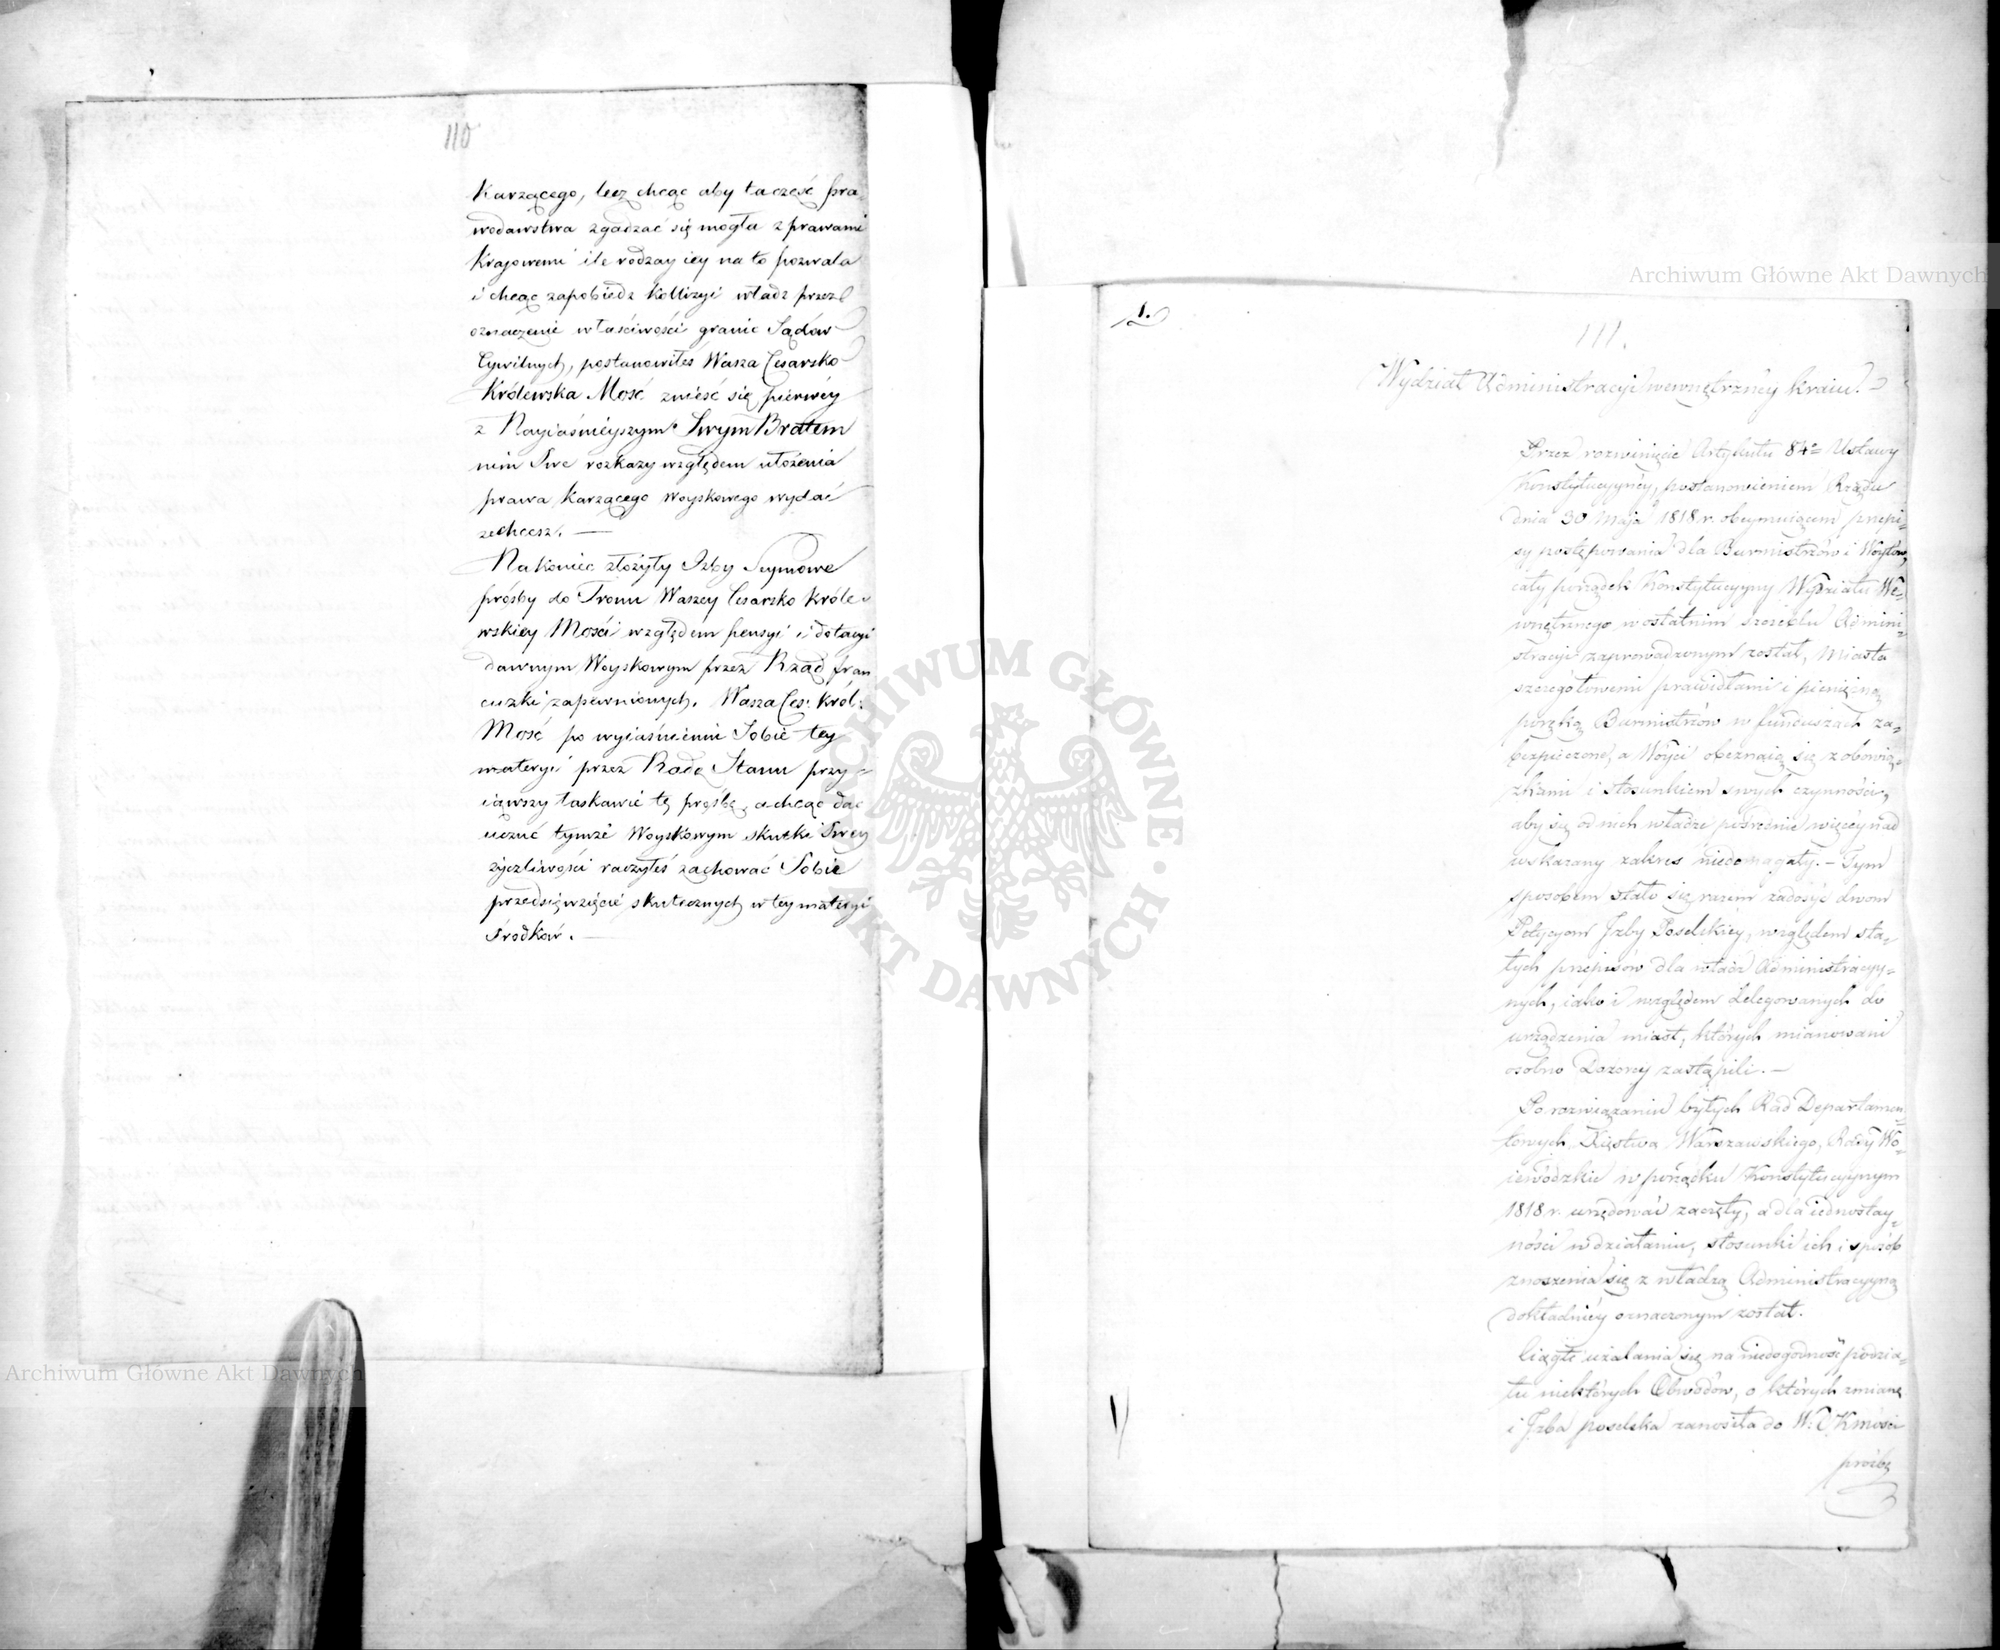 110
Karzącego, lecz chcąc aby ta część pra-
wodawstwa zgadzać się mogła z prawami
Krajowemi ile rodzay iey na to pozwala
i chcąc zapobiedz kollizyi władz przez
oznaczenie właściwości granic Sądów
Cywilnych, postanowiłeś Wasza Cesarsko
Królewska Mość znieść się pierwéy
z Nayiaśnieyszym Swym Bratem
nim Swe rozkazy względem ułożenia
prawa Karzącego Woyskowego wydać
zechcesz. —
Nakoniec złożyły Izby Seymowe
prośby do Tronu Waszey Cesarsko Króle-
wskiey Mości względem pensyi i dotacyi
dawnym Woyskowym przez Rząd fran
cuzki zapewnionych. Wasza Ces: Król:
Mość po wyiaśnieniu Sobie tey
materyi przez Radę Stanu przy-
iąwszy łaskawie tę prośbę, a chcąc dać
uczuć tymże Woyskowym skutki Swey
życzliwości raczyłeś zachować Sobie
przedsięwzięcie skutecznych w tey materyi
środków. —
1.
111.
Wydział Administracyi wewnętrzney kraiu.
Przez rozwinięcie Artykułu 84º Ustawy
Konstytucyynéy, postanowieniem Rządu
dnia 30 Maja 1818 r. obeymuiącem przepi-
sy postępowania dla Burmistrzów i Woytów,
cały porządek Konstytucyyny Wydziału We-
wnętrznego w ostatnim szczeblu Admini-
stracyi zaprowadzonym został, Miasta
szczegółowemi prawidłami i pieniężną
poręką Burmistrzów w funduszach za-
bezpieczone, a Wóyci obeznaią się z obowią-
zkami i stosunkiem swych czynności,
aby się od nich władze pośrednie więcéy nad
wskazany zakres niedomagały. — Tym
sposobem stało się razem zadosyć dwom
Petycyom Izby Poselskiéy, względem sta-
łych przepisów dla władz Administracyy-
nych, iako i względem delegowanych do
urządzenia miast, których mianowani
osobno Dozorcy zastąpili. —
Po rozwiązaniu byłych Rad Departamen-
towych Xięstwa Warszawskiego, Rady Wo-
iewódzkie w porządku Konstytucyynym
1818 r. urzędować zaczęły, a dla iednostay-
ności w działaniu, stosunki ich i sposób
znoszenia się z władzą Administracyyną
dokładniéy oznaczonym został.
Ciągłe użalania się na niedogodność podzia-
łu niektórych Obwodów, o których zmianę
i Izba poselska zanosiła do W: C K Mości
prośbę
Archiwum Główne Akt Dawnych
Archiwum Główne Akt Dawnych
ARCHIWUM GŁÓWNE AKT DAWNYCH